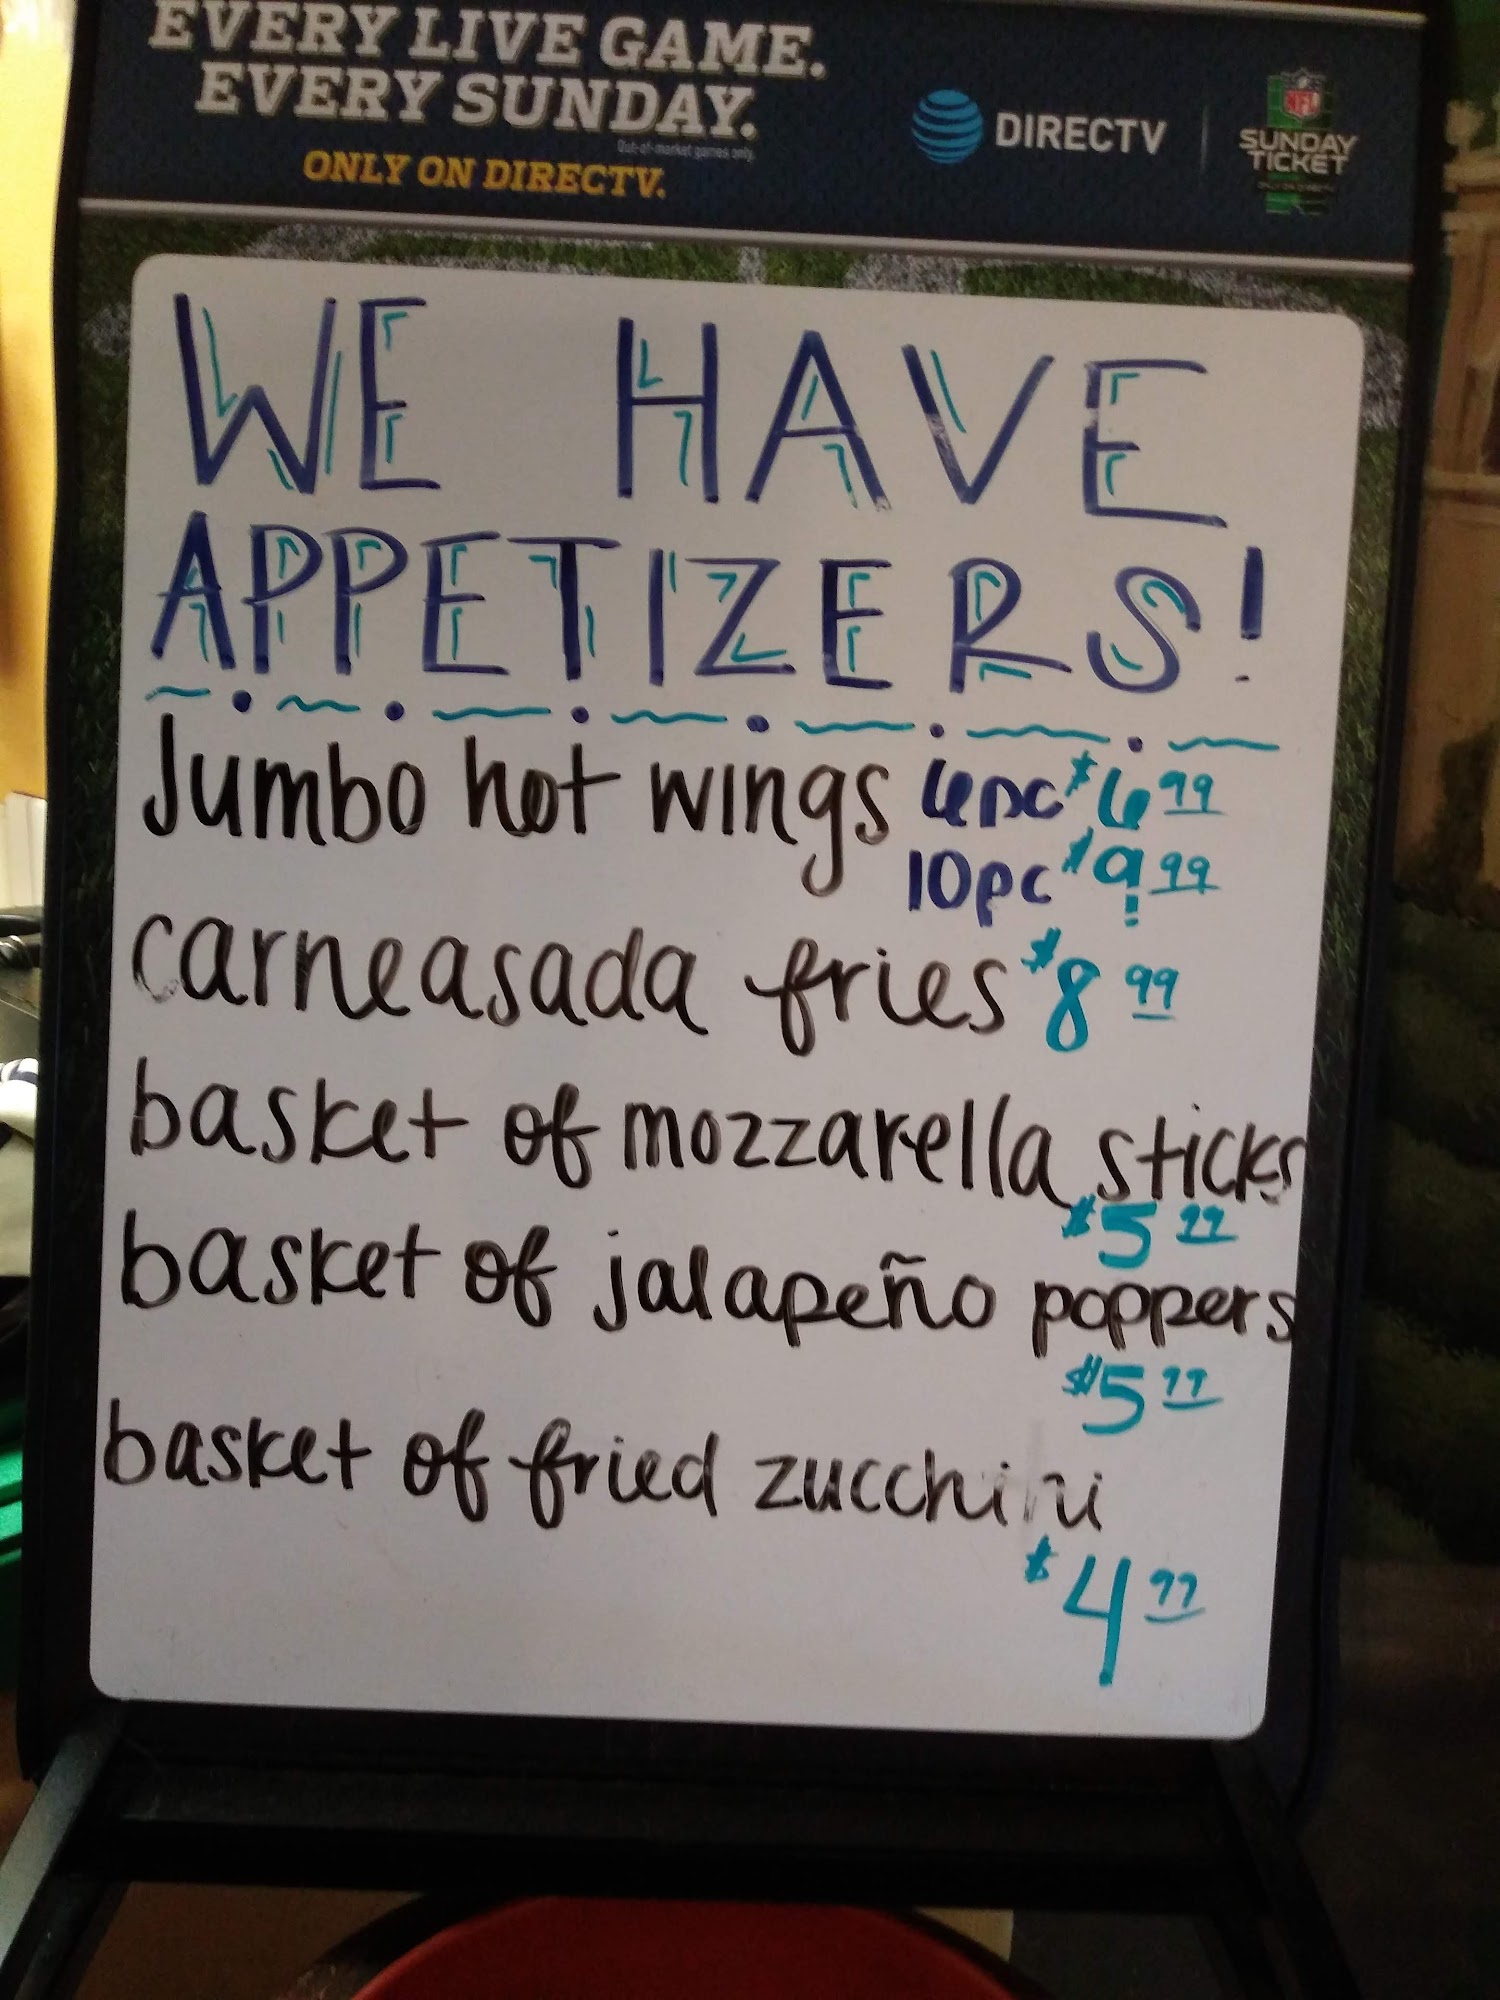 EVERY LIVE GAME.
EVERY SUNDAY.
Out-of-market games only.
ONLY ON DIRECTV.
DIRECTV
NFL
SUNDAY
TICKET
WE HAVE
APPETIZERS!
Jumbo hot wings 6pc $6 99
10pc $9 99
carneasada fries $8 99
basket of mozzarella sticks
$5 99
basket of jalapeño poppers
$5 99
basket of fried zucchini
$4 99